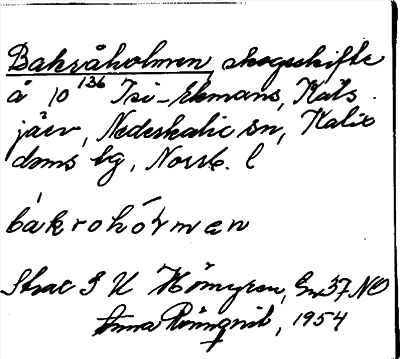 Bakråholmen skogsskifte
å 10 136 Isi-Ekmans, Räk-
järv, Nederkalix sn, Kalix
doms hg, Norrb. l
bakrohólman
Strax S U Hömyren, Gm 37 NO
Anna Rönnqvist, 1954